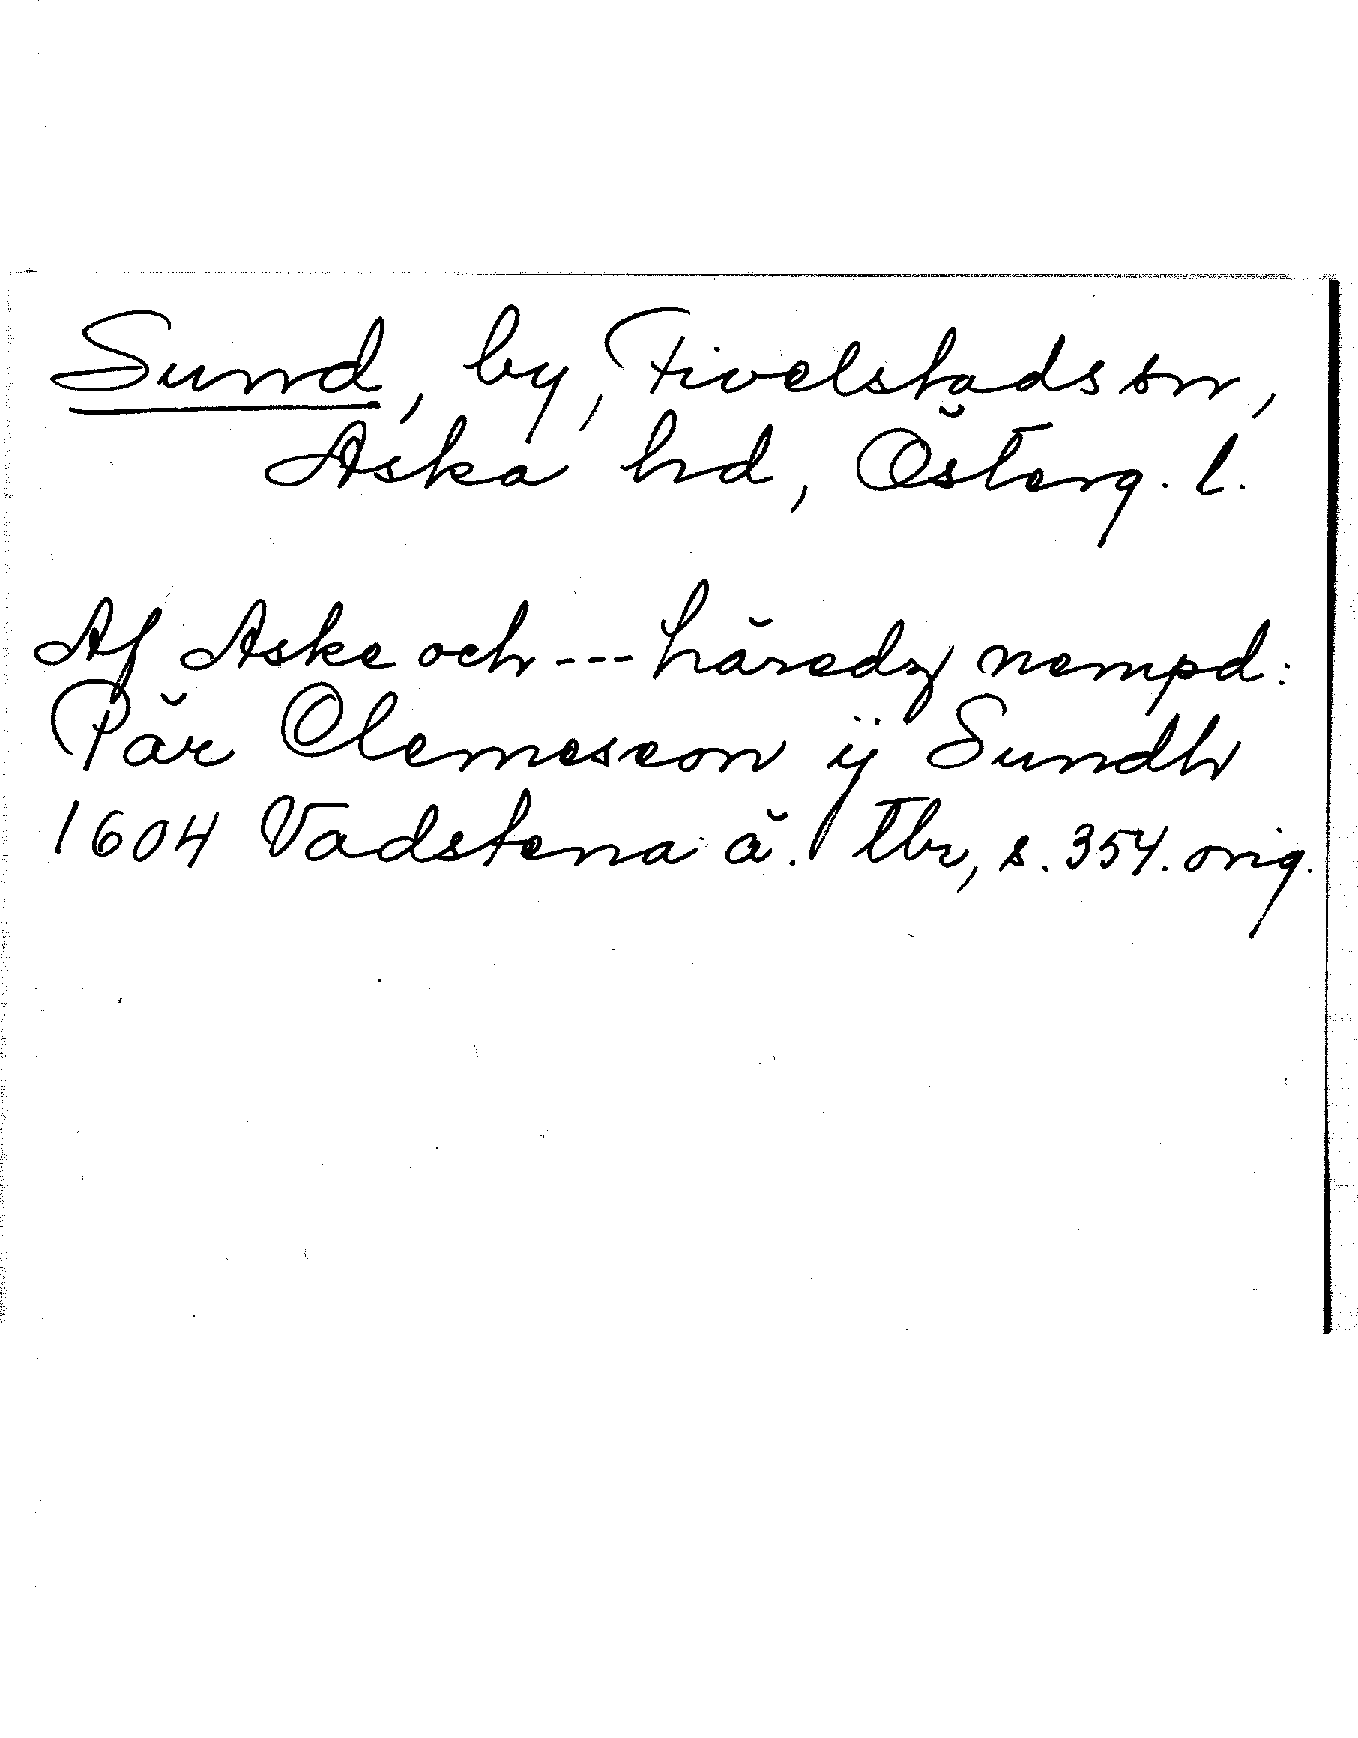 Sund, by, Fivelstads sn,
Aska hd, Österg. l.
Af Aske och --- häredz nempd:
Pär Clemeseon ÿ Sundh
1604 Vadstena ä. Tbr, s. 354. orig.